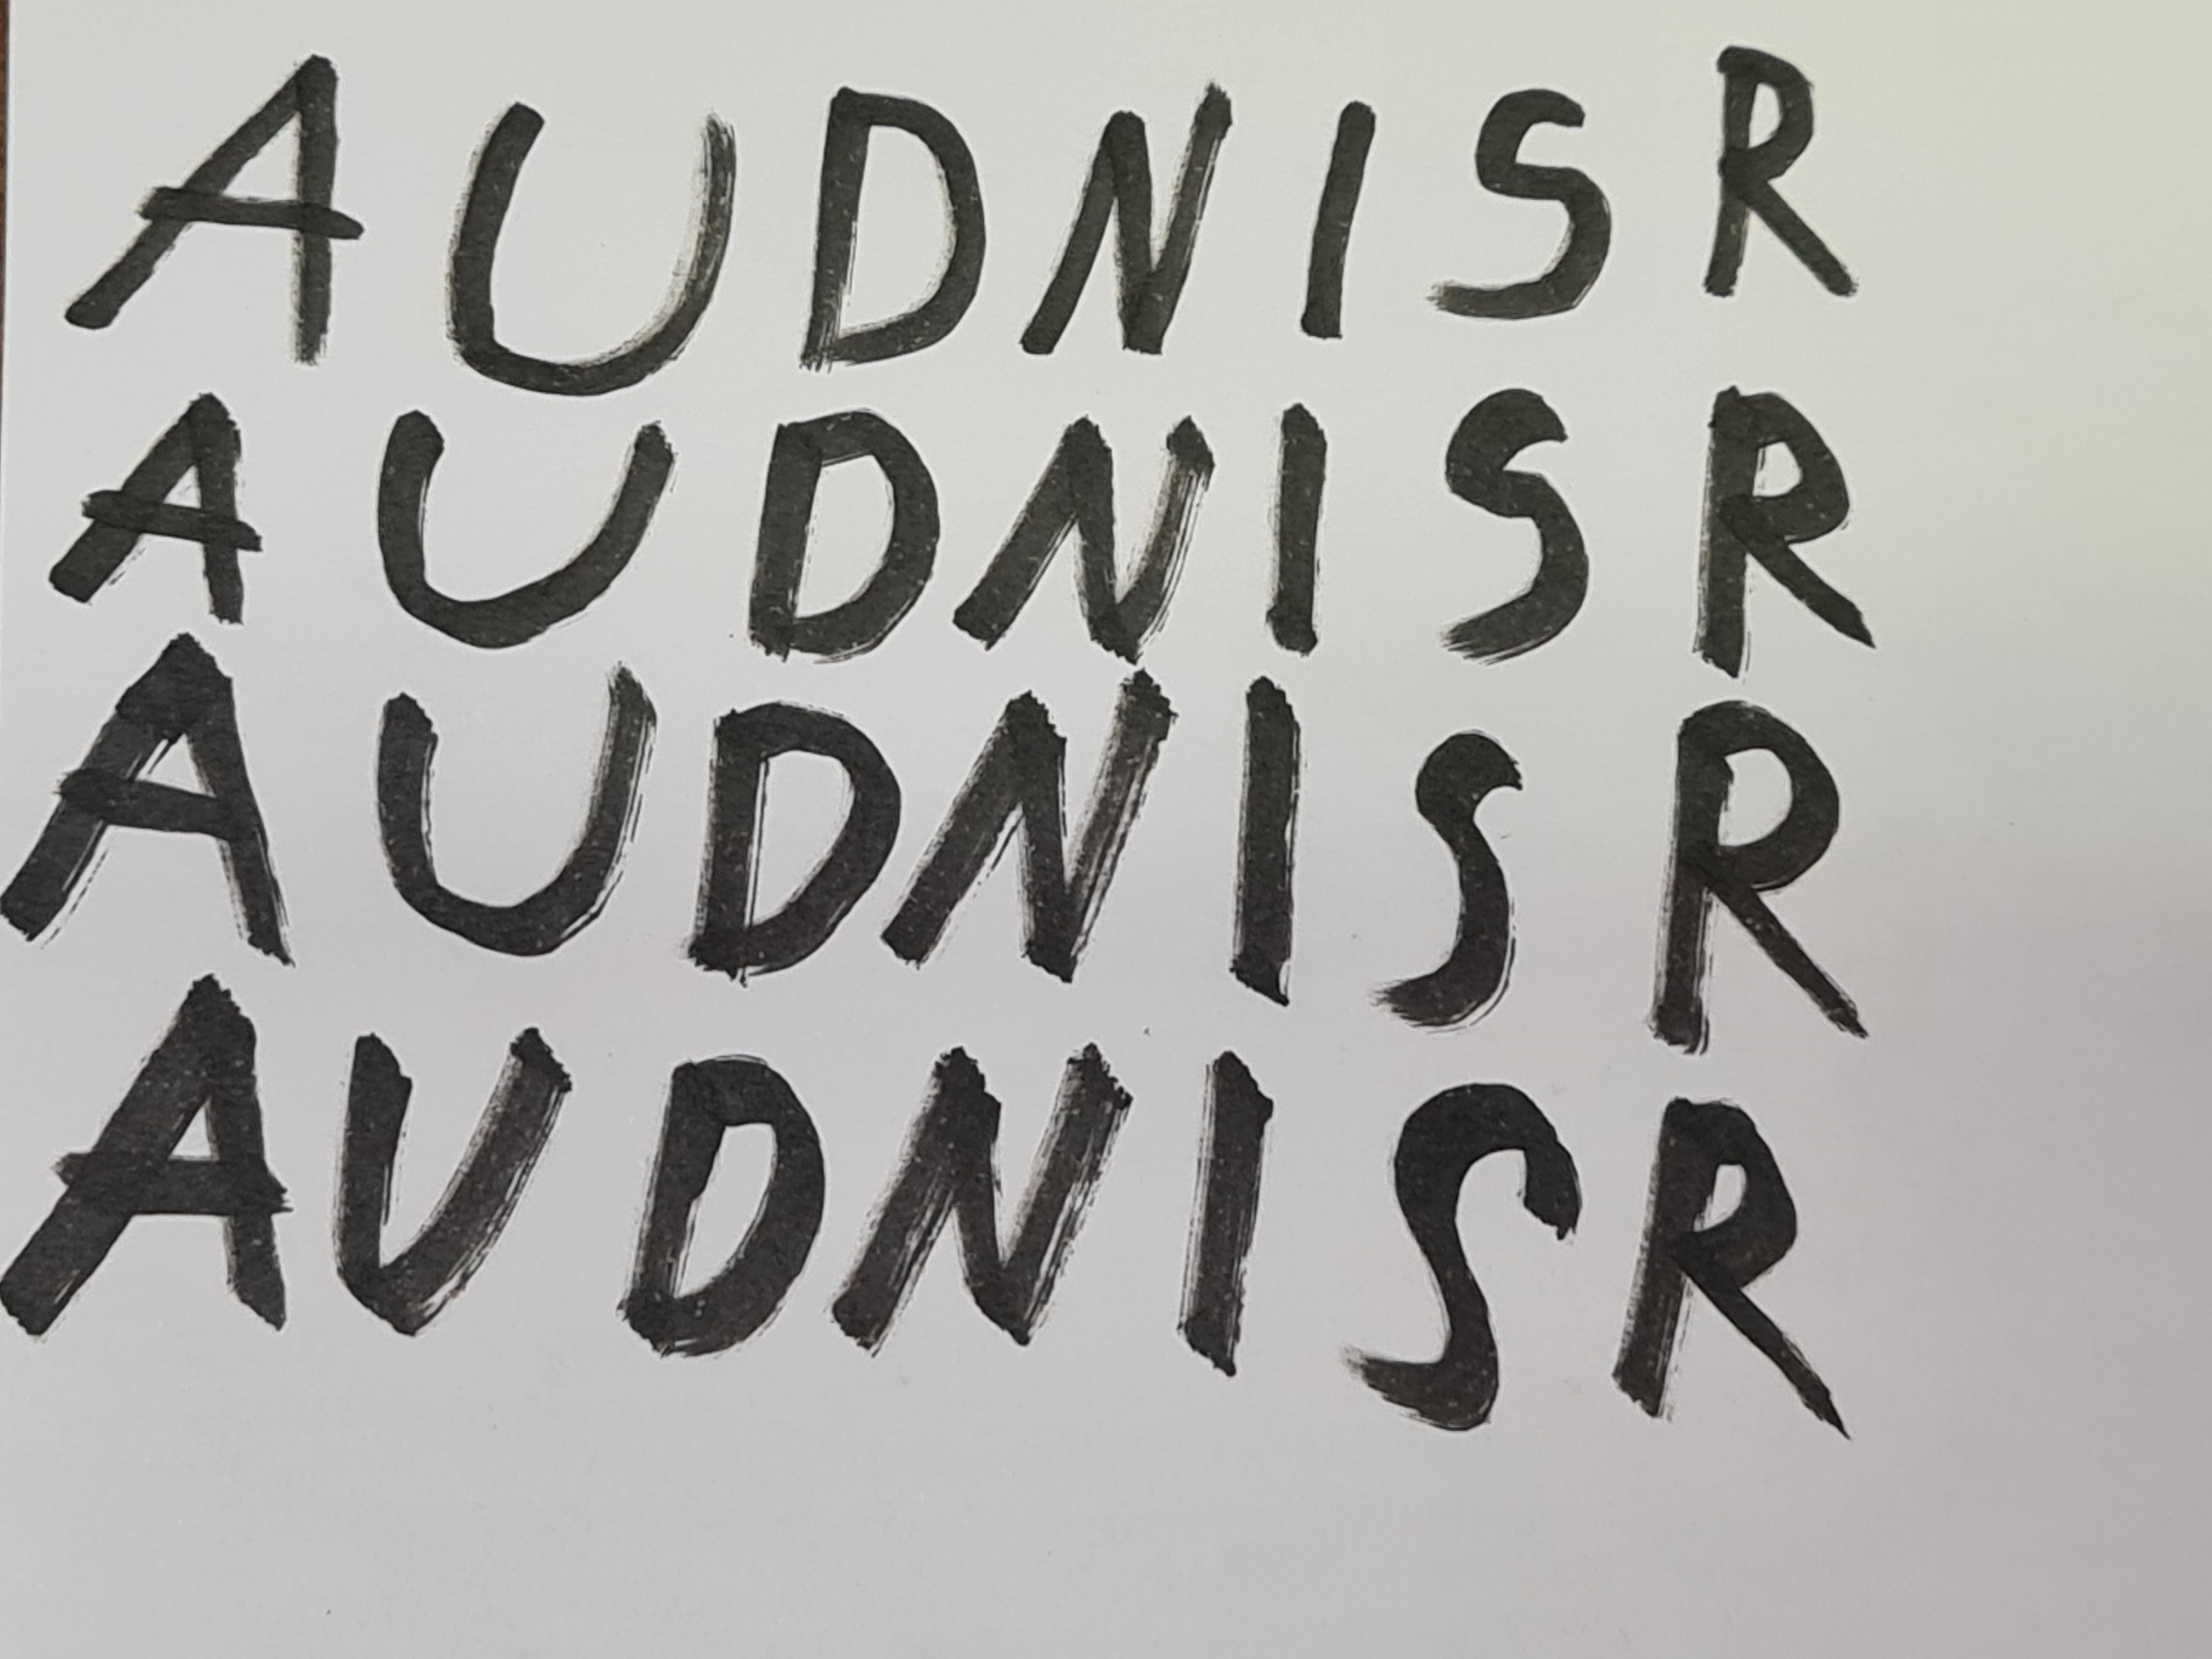 A U D N I S R
A U D N I S R
A U D N I S R
A U D N I S R